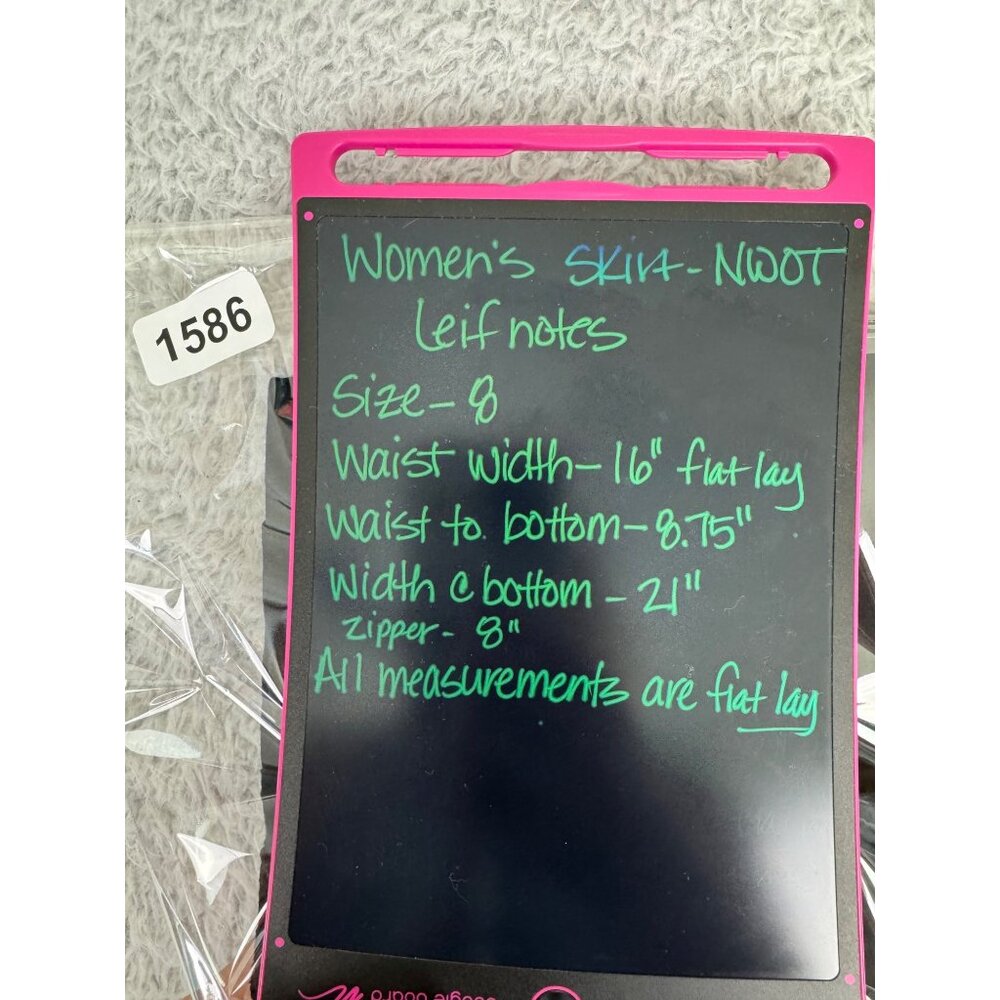 1586
Women's Skirt - NWOT
Leifnotes
Size - 8
Waist width - 16" flat lay
Waist to bottom - 8.75"
Width @ bottom - 21"
zipper - 8"
All measurements are flat lay